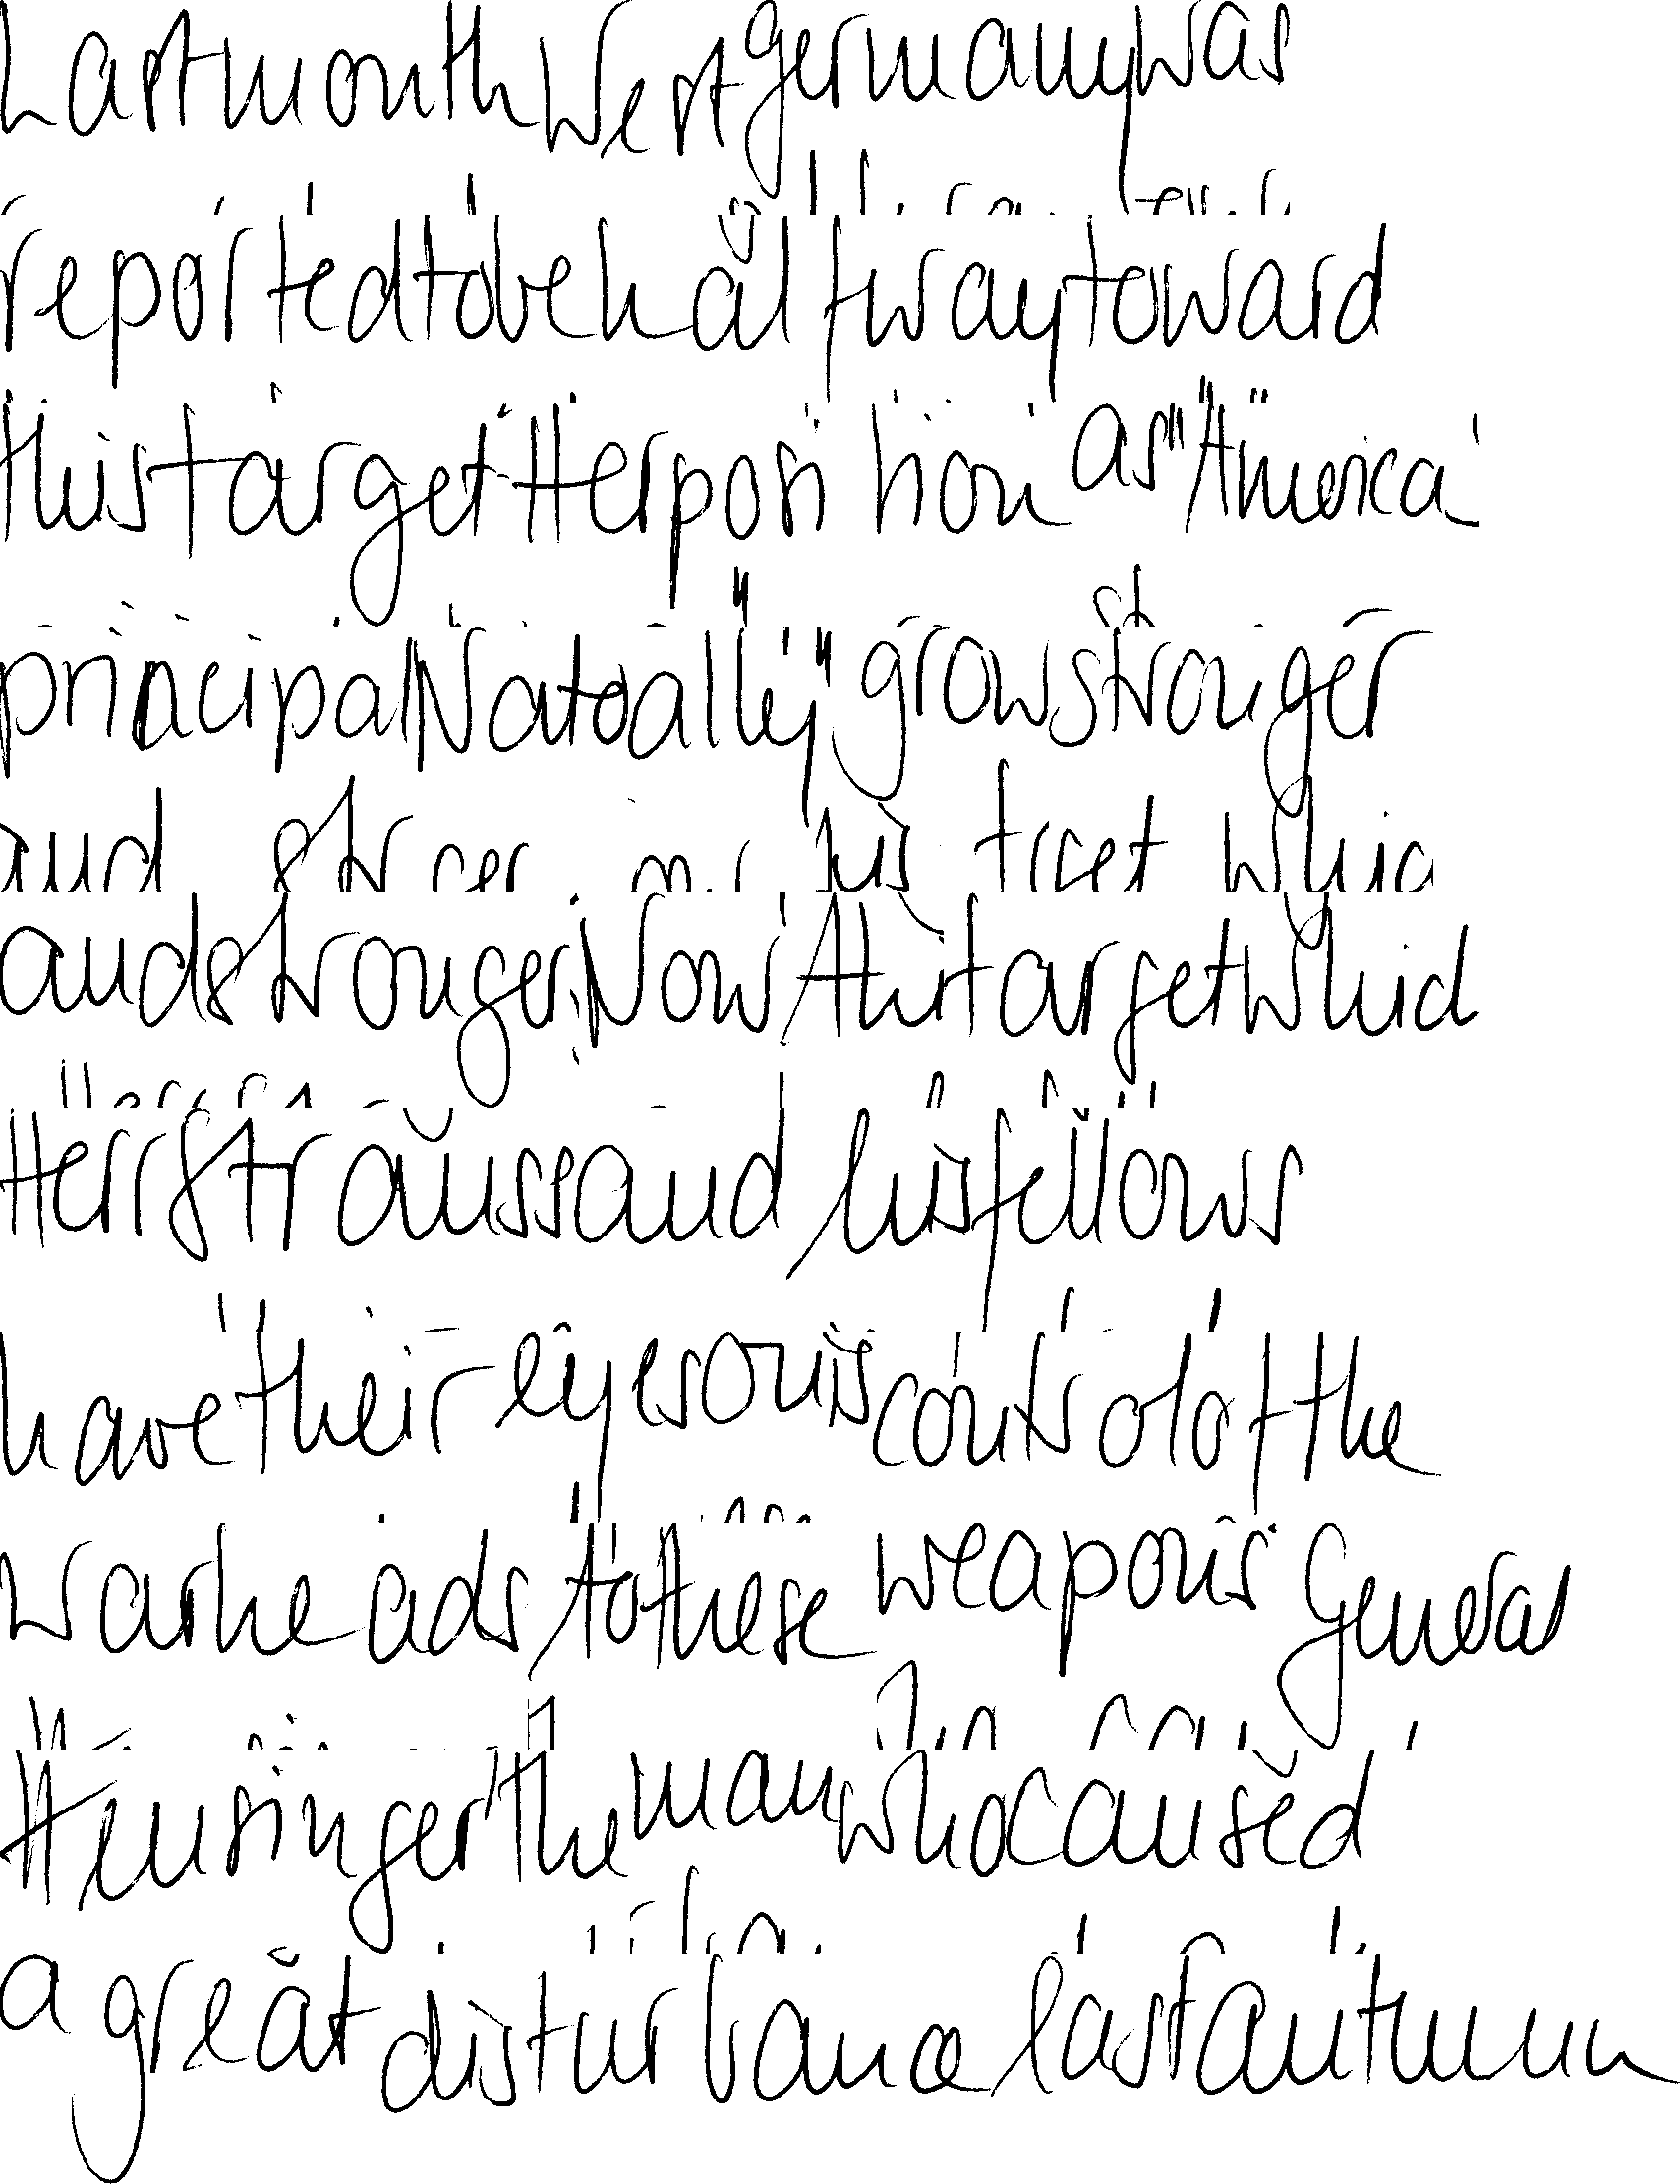 Last month West Germany was
reported to be half way toward
this target. Her position as "America's
principal Nato ally" grows stronger
and stronger. Now this target which
Herr Strauss and his fellows
have their eyes on is control of the
warheads to these weapons. General
Heusinger, the man who caused
a great disturbance last autumn